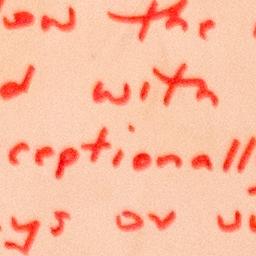 ow the
d with
ceptionall
ys or